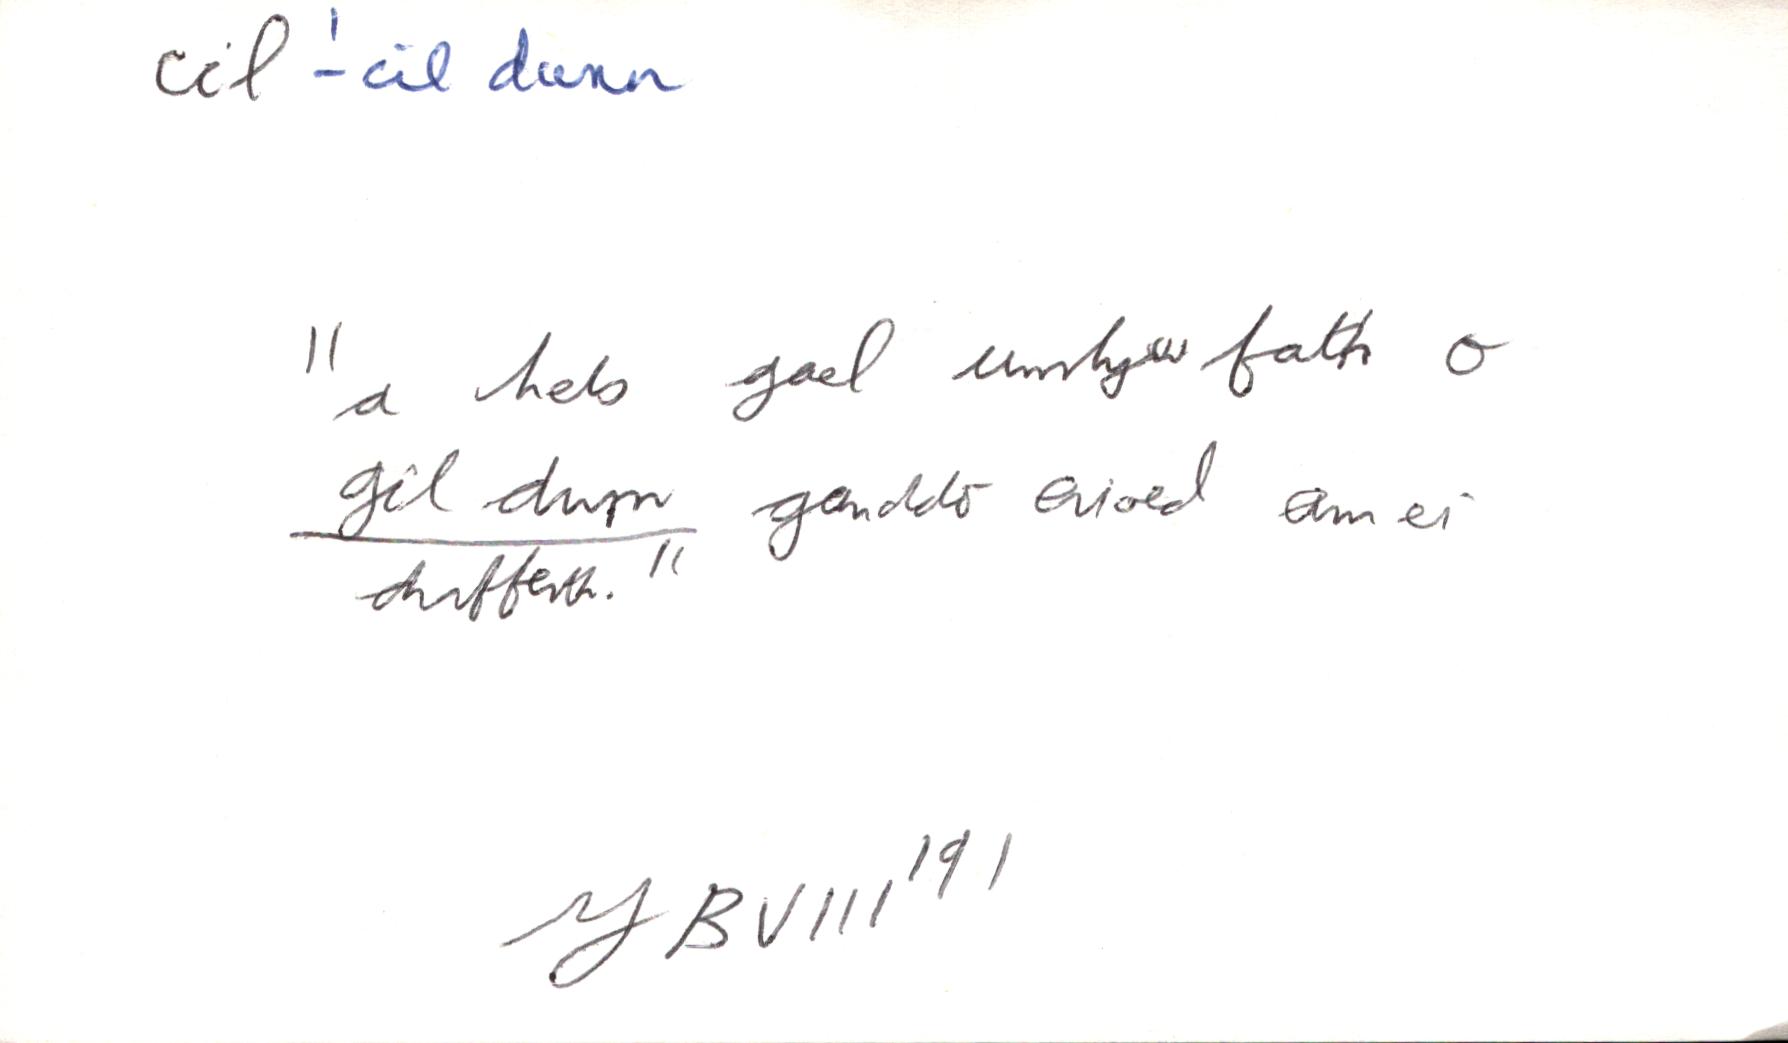 cil - cil dwrn
"a heb gael unrhyw fath o
gil dwrn ganddo erioed am ei
drafferth."
YB VIII 191